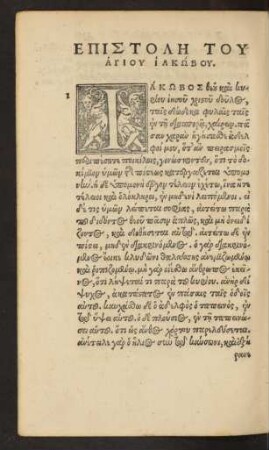 ΕΠΙΣΤΟΛΗ ΤΟΥ
ἉΓΙΟΥ ΙΑΚΩΒΟΥ.
1
ΙΑΚΩΒΟΣ θεοῦ καὶ κυ
ρίου ἰησοῦ χριστοῦ δοῦλος,
ταῖς δώδεκα φυλαῖς ταῖς
ἐν τῇ διασπορᾷ, χαίρειν. πᾶ
σαν χαρὰν ἡγήσασθε ἀδελ
φοί μου, ὅταν πειρασμοῖς
περιπέσητε ποικίλοις, γινώσκοντες, ὅτι τὸ δο
κίμιον ὑμῶν τῆς πίστεως κατεργάζεται ὑπομο
νὴν. ἡ δὲ ὑπομονὴ ἔργον τέλειον ἐχέτω, ἵνα ἦτε
τέλειοι καὶ ὁλόκληροι, ἐν μηδενὶ λειπόμενοι. εἰ
δέ τις ὑμῶν λείπεται σοφίας, αἰτείτω παρὰ
τοῦ διδόντος θεοῦ πᾶσιν ἁπλῶς, καὶ μὴ ὀνειδί
ζοντος, καὶ δοθήσεται αὐτῷ. αἰτείτω δὲ ἐν
πίστει, μηδὲν διακρινόμενος. ὁ γὰρ διακρινό
μενος ἔοικε κλύδωνι θαλάσσης ἀνεμιζομένῳ
καὶ ῥιπιζομένῳ. μὴ γὰρ οἰέσθω ὁ ἄνθρωπος ἐκεῖ
νος, ὅτι λήψεταί τι παρὰ τοῦ κυρίου. ἀνὴρ δί
ψυχος, ἀκατάστατος ἐν πάσαις ταῖς ὁδοῖς
αὐτοῦ. καυχάσθω δὲ ὁ ἀδελφὸς ὁ ταπεινὸς, ἐν
τῷ ὕψει αὐτοῦ. ὁ δὲ πλούσιος, ἐν τῇ ταπεινώ
σει αὐτοῦ. ὅτι ὡς ἄνθος χόρτου παρελεύσεται.
ἀνέτειλε γὰρ ὁ ἥλιος σὺν τῷ καύσωνι, καὶ ἐξή
ρανε